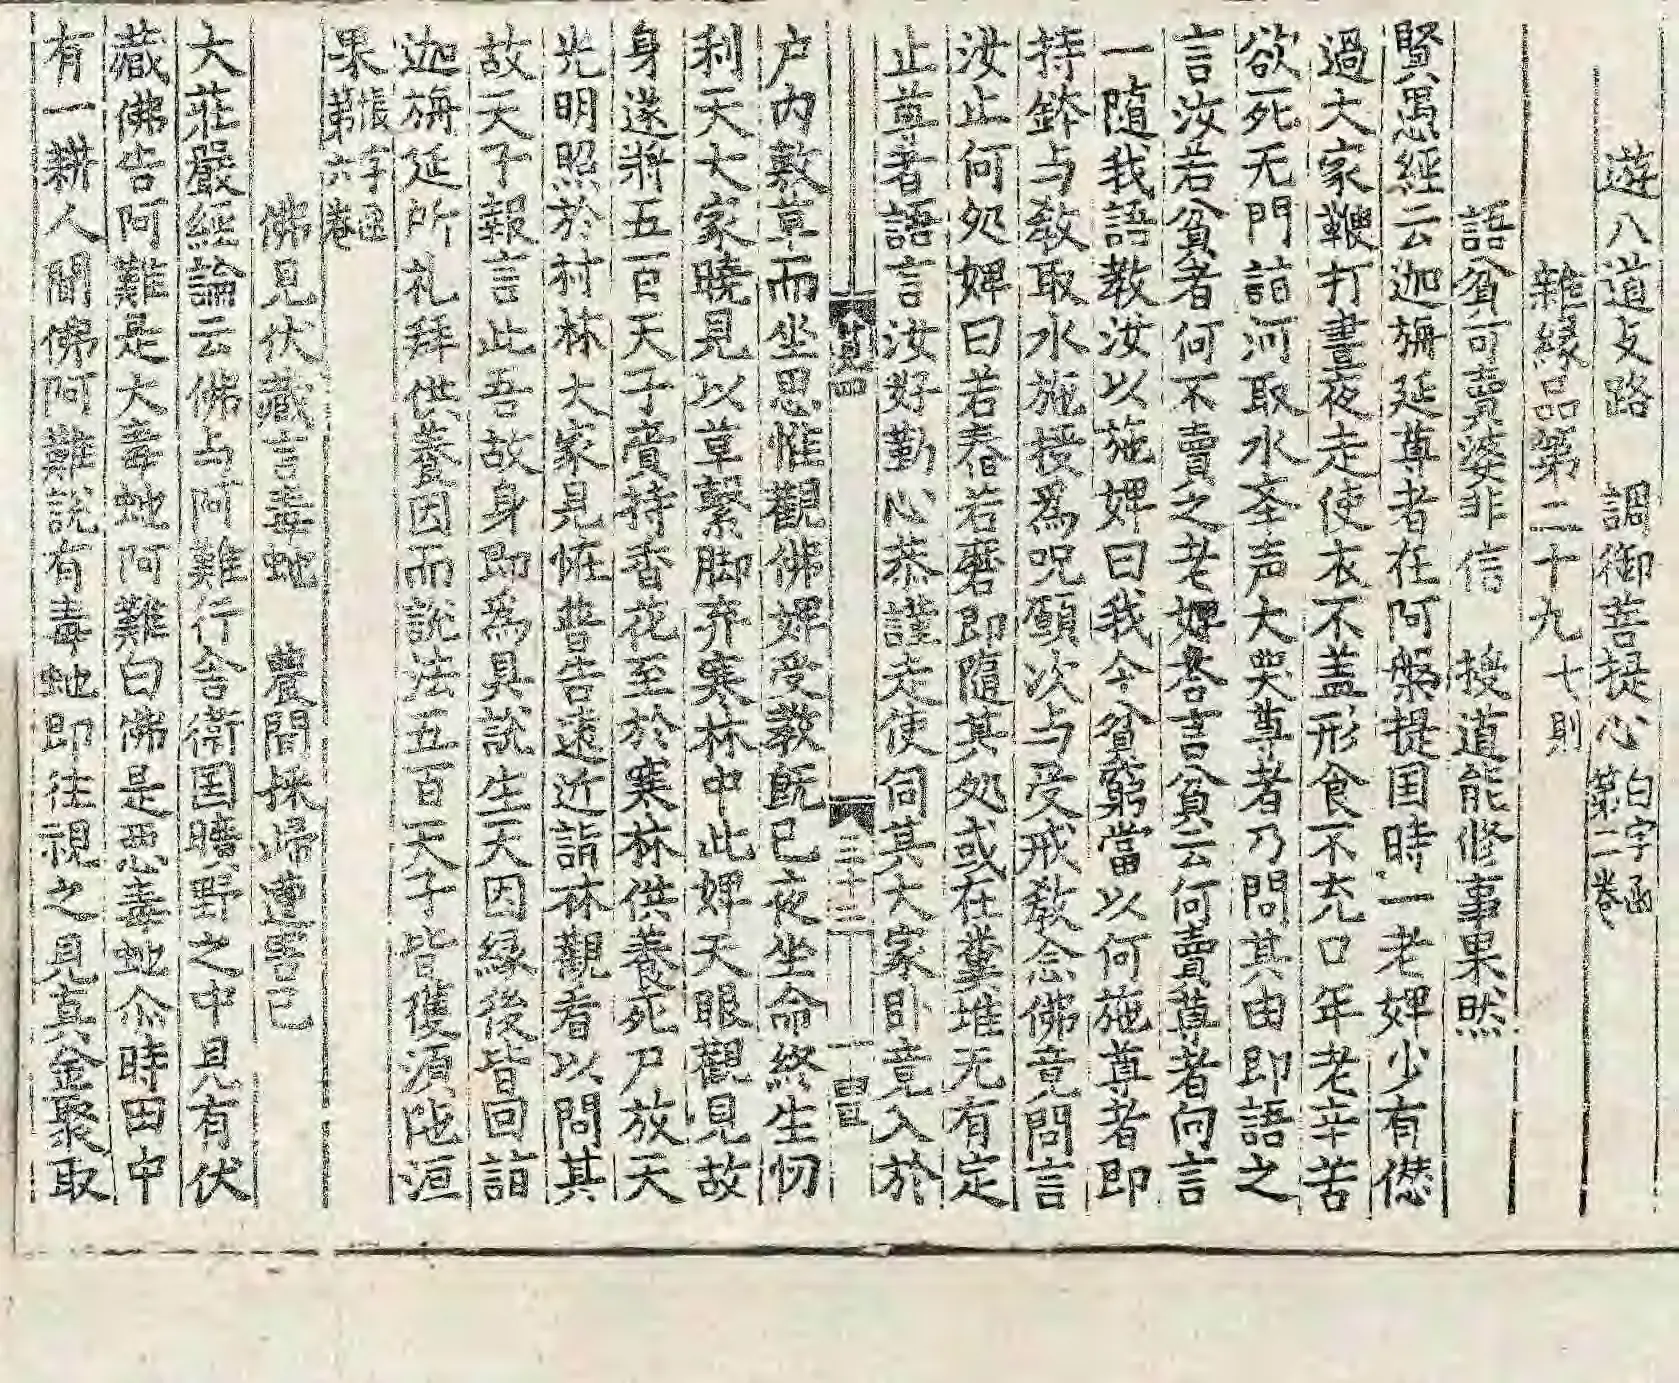 遊八道攴路　調御菩提心 白字函第二卷
雜緣品第二十九 七則
語貧可賣婆非信　授道能修事果然
賢愚經云迦旃延尊者在阿槃提国時一老婢少有𠍴
過大家鞭打晝夜走使衣不盖形食不充口年老辛苦
欲死无門詣河取水夆声大哭尊者乃問其由即語之
言汝若貧者何不賣之老婢答言貧云何賣尊者向言
一隨我語教汝以施婢曰我今貧窮當以何施尊者即
持鉢与教取水施授爲呪願次与受戒教念佛竟問言
汝止何処婢曰若舂若磨即隨其処或在糞堆无有定
止尊者語言汝好勤心恭謹走使伺其大家卧竟入於
三十三
户内敷草而坐思惟觀佛婢受教既已夜坐命終生忉
利天大家曉見以草繫脚弃寒林中此婢天眼觀見故
身遂將五百天子賫持香花至於寒林供養死尸放天
光明照於村林大家見恠普告遠近詣林觀者以問其
故天子報言此吾故身即為具說生天因緣後皆回詣
迦旃延所礼拜供養因而說法五百天子皆獲湏陁洹
果 悵字函第六卷
佛見伏藏言毒虵　農間採歸遭害己
大莊嚴經論云佛与阿難行舍衛国曠野之中見有伏
藏佛告阿難是大毒虵阿難白佛是惡毒虵尒時田中
有一耕人聞佛阿難說有毒虵即往視之見真金聚取